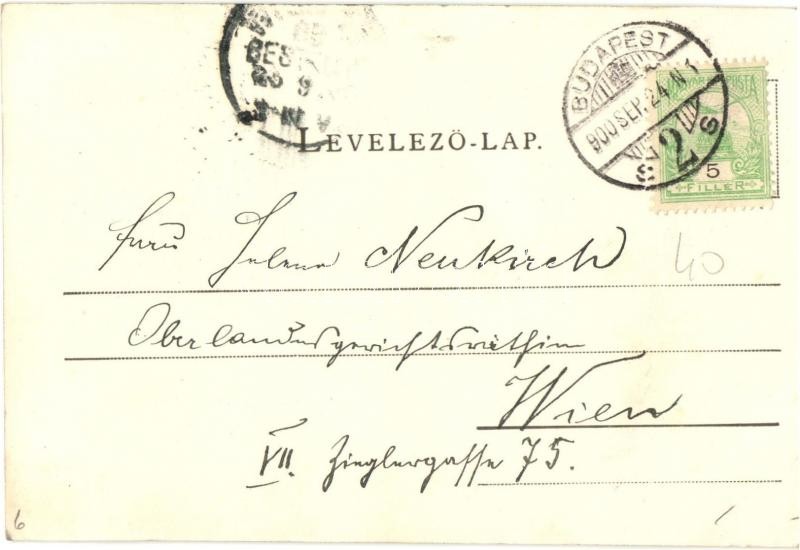 BEST
25 9
BUDAPEST
900 SEP. 24 N 1
2
MAGYAR KIR. POSTA
5
FILLER
LEVELEZŐ-LAP.
Frau Helene Neukirch
40
Oberlandesgerichtsräthin
Wien
VII. Zieglergasse 75.
6